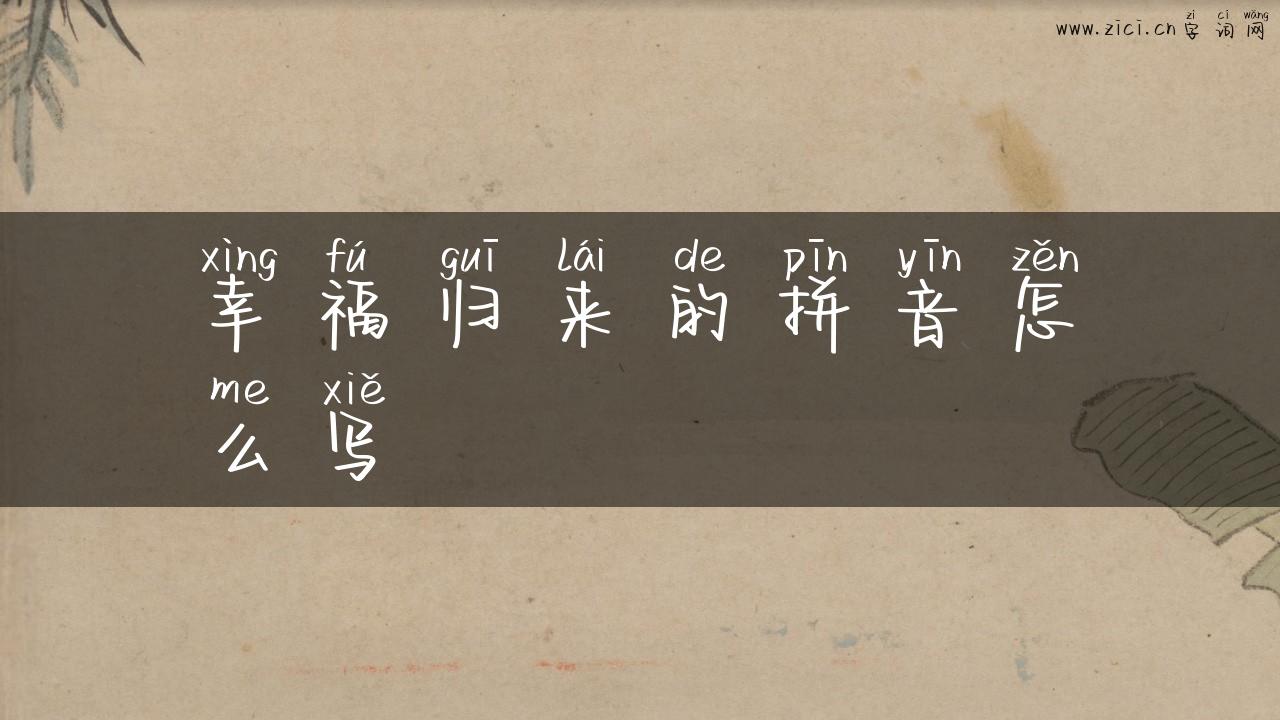 zì cí wǎng
www.zici.cn 字词网
xìng fú guī lái de pīn yīn zěn
幸福归来的拼音怎
me xiě
么写